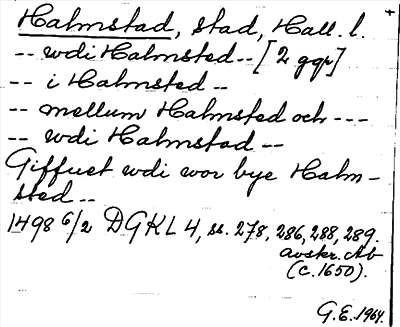 Halmstad, stad, Hall. l.
-- wdi Halmsted -- [2 ggr]
-- i Halmsted --
-- mellum Halmsted och ---
-- wdi Halmstad --
Giffuet wdi wor bye Halm-
sted --
1498 6/2 DGKL 4, ss. 278, 286, 288, 289.
avskr. Ab
(c. 1650).
G.E. 1964.